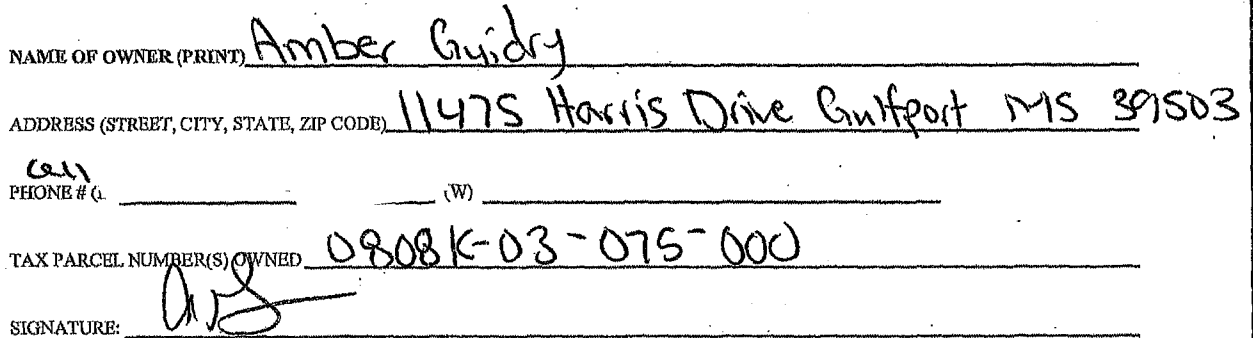 NAME OF OWNER (PRINT) Amber Guidry
ADDRESS (STREET, CITY, STATE, ZIP CODE) 11475 Harris Drive Gulfport MS 39503
Cell
PHONE # ( (W)
TAX PARCEL NUMBER(S) OWNED 0808K-03-075-000
SIGNATURE: